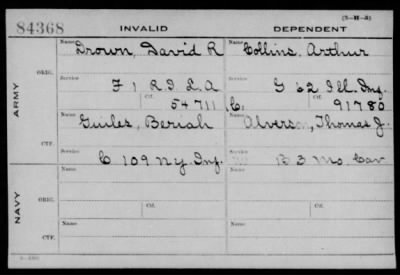 (3-H-3)
84368 INVALID DEPENDENT
ARMY
ORIG.
Name Drown, David R Name Collins, Arthur
Service F 1 R.I. L.A Service G 62 Ill. Inf.
Ctf. 54711 C. Ctf. 91780
CTF.
Name Guiles, Beriah Name Alverson, Thomas J.
Service C 109 N.Y. Inf. Service B 3 Mo. Cav
NAVY
ORIG.
Name Name
Ctf. Ctf.
CTF.
Name Name